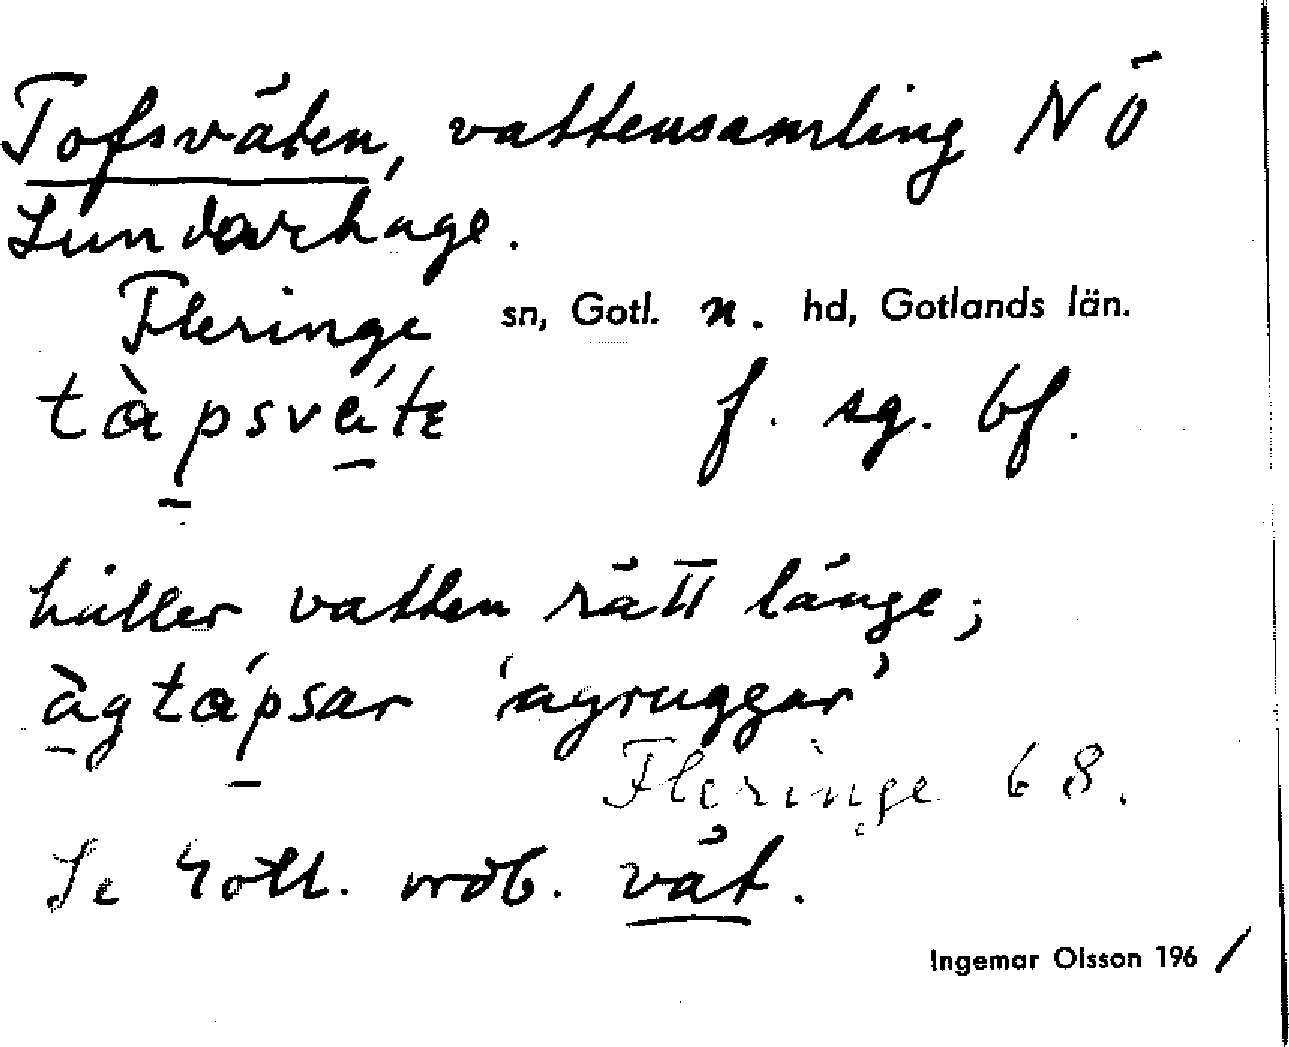 Tofsväten, vattensamling NÖ
Lundarhage.
Fleringe sn, Gotl. n. hd, Gotlands län.
tàpsváte f. sg. bf.
håller vatten rätt länge;
àgtápsar 'agruggar'
Fleringe 68.
Se Gotl. ordb. vät.
Ingemar Olsson 1961